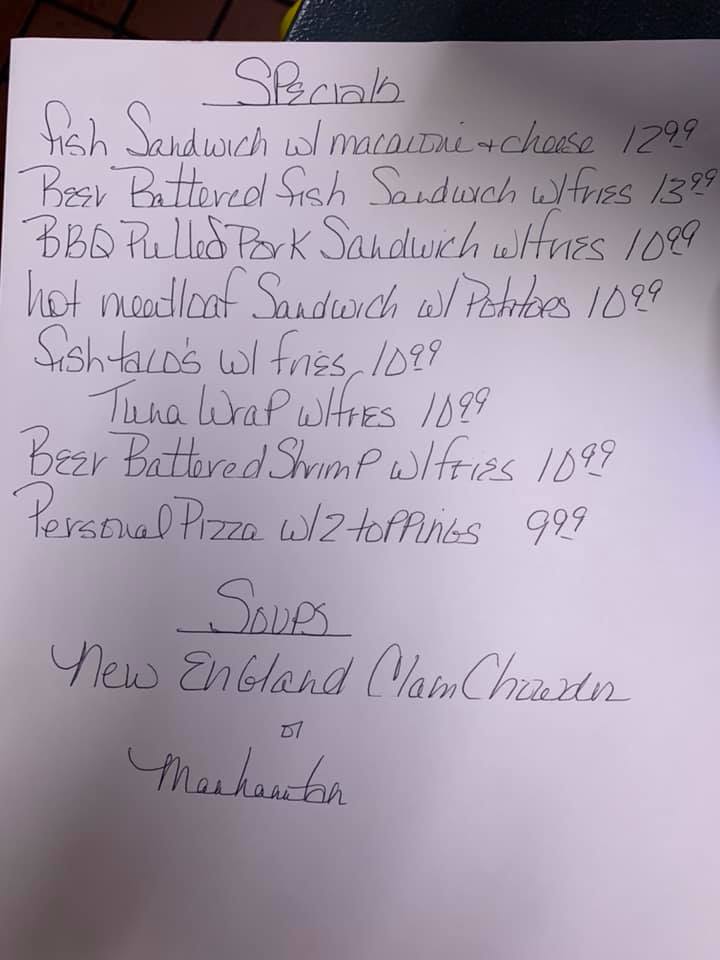 Specials
fish Sandwich w/ macaroni + cheese 12 99
Beer Battered fish Sandwich w/fries 13 99
BBQ Pulled Pork Sandwich w/fries 10 99
hot meatloaf Sandwich w/ Potatoes 10 99
fish taco's w/ fries 10 99
Tuna Wrap w/fries 10 99
Beer Battered Shrimp w/fries 10 99
Personal Pizza w/2 toppings 9 99
Soups
New England Clam Chowder
or
Manhanttan